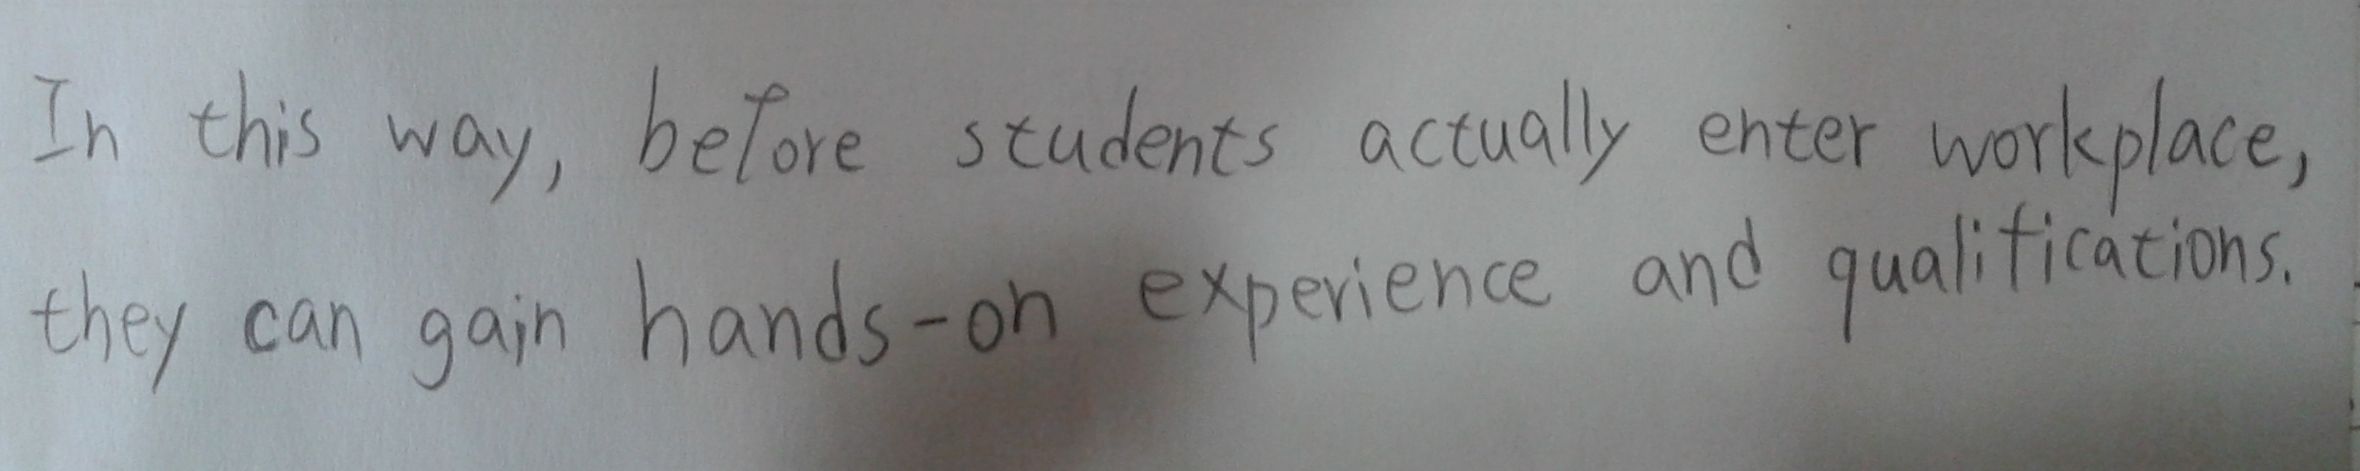 In this way, before students actually enter workplace,
they can gain hands-on experience and qualifications.